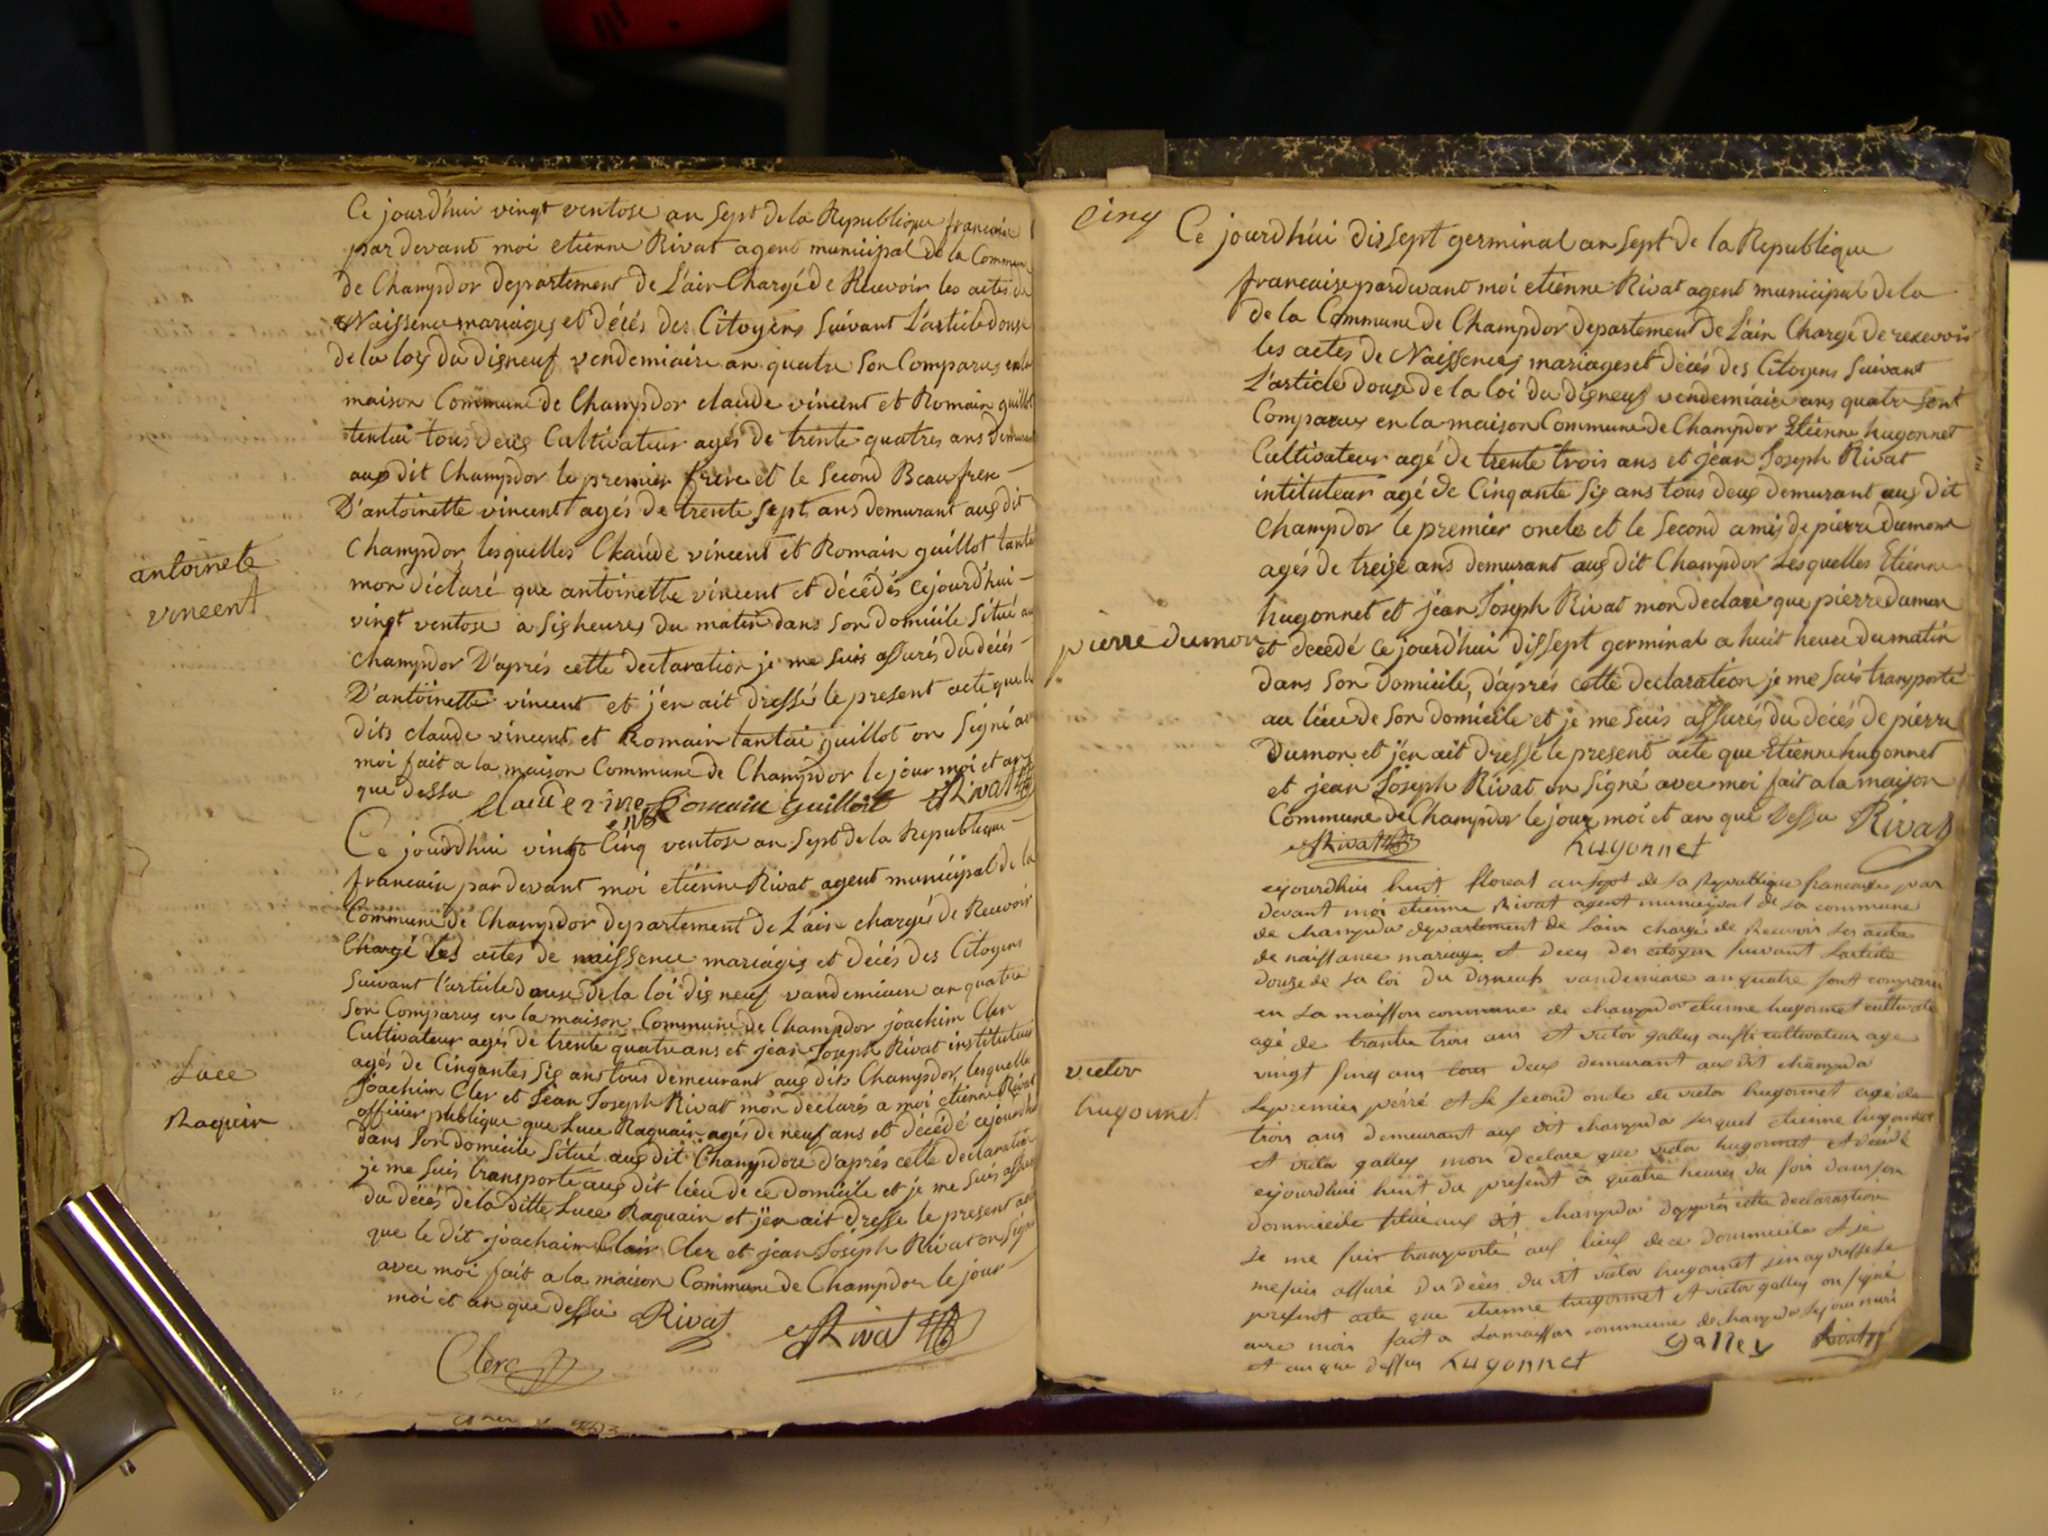 Ce jourd'hui vingt ventose an sept de la Republique francaise
par devant moi etienne Rivat agent municipal de la Commune
de Champdor departement de L'ain Chargé de Recevoir les actes de
Naissence mariages et décés des Citoyens suivant L'article douse
de la loy du disneuf vendemiaire an quatre son Comparus en la
maison Commune de Champdor claude vincent et Romain guillot
tentai tous deus Cultivateur agés de trente quatres ans demurant
aus dit Champdor le premier frere et le second Beaufrere
D'antoinette vincent agés de trente sept ans demurant aus dit
Champdor lesquelles Claude vincent et Romain guillot tantai
mon déclaré que antoinette vincent et décédés cejourd'hui
antoinete
vincent
vingt ventose a sis heures du matin dans son domicile situé au
champdor D'aprés cette declaration je me suis assurés du décés
D'antoinette vincent et j'en ait dressé le present acte que le
dits claude vincent et Romain tantai guillot on signé avec
moi fait a la maison Commune de Champdor le jour moi et an
que dessu claude vincent Romain Guillot Rivat
Ce jourdhui vingt Cinq ventose an sept de la Republique
francaise par devant moi etienne Rivat agent municipal de la
Commune de Champdor departement de L'ain chargés de Recevoir
Chargé les actes de naissence mariages et décés des Citoyens
suivant l'article douse de la loi disneuf vandemiaire an quatre
son Comparus en la maison Commune de Champdor joachim Cler
Cultivateur agés de trente quatre ans et jean Joseph Rivat instituteur
agés de Cinqantes sis ans tous demeurant aus dits Champdor, lesquelle
Luce
Raquin
Joachim Cler et Jean Joseph Rivat mon declarés a moi etienne Rivat
officier publique que Luce Raquain agés de neuf ans et décédé cejourdhui
dans son domicile situé aus dit Champdore d'aprés cette declaration
je me suis transporté aus dit lieu de ce Domicile et je me suis assuré
du décés de la ditte Luce Raquain et j'en ait dressé le present acte
que le dit joachaim Clair Cler et jean Joséph Rivat on signé
avec moi fait a la maison Commune de Champdor le jour
moi et an que dessu Rivat Rivat
Clerc
cinq
Ce jourdhui dissept germinal an sept de la Republique
francaise pardevant moi etienne Rivat agent municipal de la
de la Commune de Champdor departement de L'ain Chargé de recevoir
les actes de Naissences mariages et décés des Citoyens suivant
L'article douse de la loi du disneuf vendemiaire ans quatre sont
Comparus en la maison Commune de Champdor Etienne hugonnet
Cultivateur agé de trente trois ans et jean Joseph Rivat
intituteur agé de Cinqante sis ans tous deus demurant aus dit
champdor le premier oncle et le second amis de pierre dumon
agés de treise ans demurant aus dit Champdor Lesquelles Etienne
hugonnet et jean Joseph Rivat mon declaré que pierre dumon
pierre dumon
et decedé ce jourd'hui dissept germinal a huit heure du matin
dans son domicile, d'aprés cette declaration je me suis transporté
au lieu de son domicile et je me suis assurés du décés de pierre
Dumon et j'en ait dressé le present acte que Etienne hugonnet
et jean Joseph Rivat on signé avec moi fait a la maison
Commune de Champdor le jour moi et an que Dessu Rivat
Rivat hugonnet
cejourdhui huit floreal an sept de la Republique francaise par
devant moi etienne Rivat agent municipal de la commune
de champdor departement de lain chargé de Recevoir les acte
de naissance mariage et deces des citoyen suivant larticle
douze de la loi du disneuf vandemiare an quatre sont comparu
en la maisson commune de champdor etienne hugonnet cultivate
agé de trantre trois ans et victor galley aussi cultivateur age
vingt sinq ans tous deux demurant aux dit champdor
victor
hugonnet
le premier perré et le second oncle de victor hugonnet agé de
trois ans demeurant aux dit champdor lesquel etienne hugonnet
et victor galley mon declare que victor hugonnet et decedé
cejourdhui huit du present à quatre heures du soir dans son
dommicile situé aux dit champdor dapprès cette declarastion
je me suis transporté aux lieux de ce dommicile et je
me suis assuré du déces du dit victor hugonnet jen ay dresse le
present acte que etienne hugonnet et victor galley on signé
avec moi fait a la maisson commune de champdor le jour mois
et an que dessus hugonnet galley Rivat